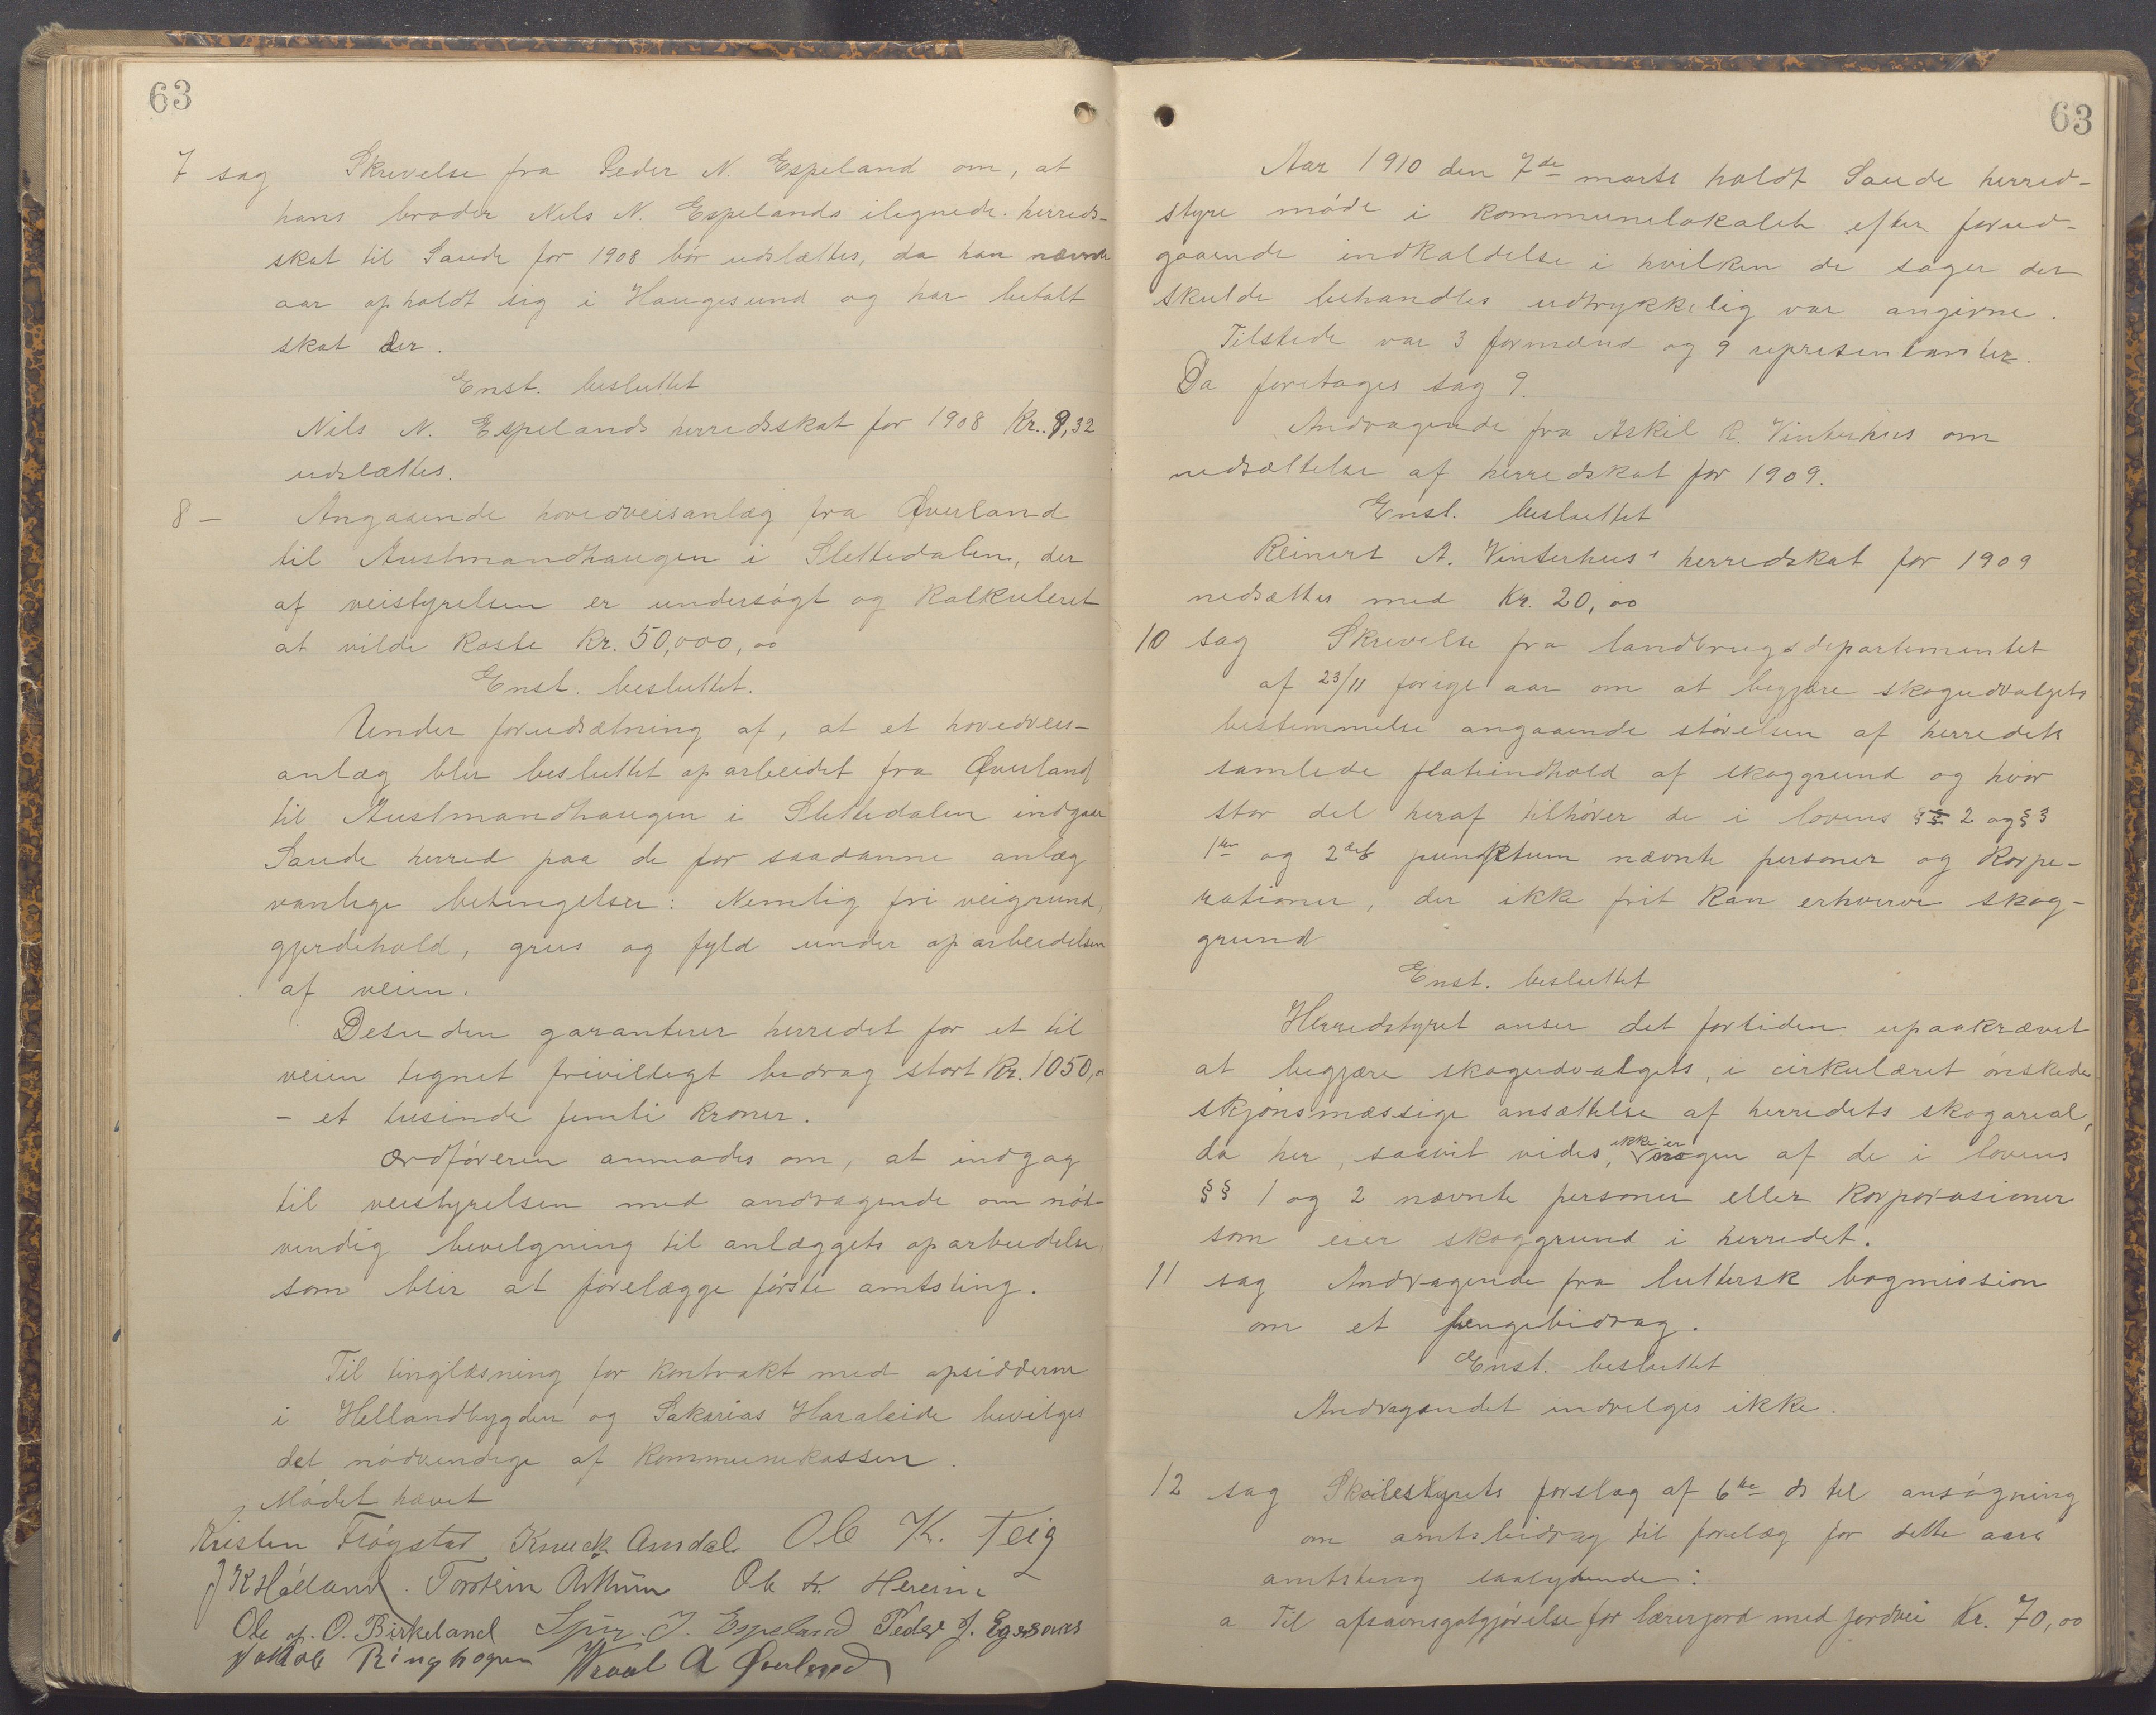 63
7 sag Skrivelse fra Peder N. Espeland om, at
hans broder Nels N. Espelands ilignede herreds-
skat til Saude for 1908 bør udslættes, da han nævnte
aar opholdt sig i Haugesund og har betalt
skat der.
Enst. besluttet
Nils N. Espelands herredsskat for 1908 Kr. 9,32
udslættes.
8 – Angaaende hovedveisanlæg fra Øverland
til Austmandhaugen i Slettedalen, der
af veistyrelsen er undersøgt og kalkuleret
at vilde koste Kr. 50,000,00
Enst. besluttet.
Under forudsætning af, at et hovedveis-
anlæg blir besluttet oparbeidet fra Øverland
til Austmandhaugen i Slettedalen indgaar
Saude herred paa de for saadanne anlæg
vanlige betingelser: Nemlig fri veigrund,
gjerdehold, grus og fyld under oparbeidelsen
af veien.
Desuden garanterer herredet for et til
veien tegnet frivilligt bidrag stort Kr. 1050,00
– et tusinde femti kroner.
Ordføreren anmodes om, at indgag
til veistyrelsen med andragende om nød-
vendig bevilgning til anlæggets oparbeidelse,
som blir at forelægge første amtsting.
Til tinglæsning for kontrakt med opsidderne
i Hellandbygden og Sakarias Haraleide bevilges
det nødvendige af kommunekassen.
Mødet hævet
Kristen Frøgstad Knuck Amdal Ole K. Teig
J K Hølland. Torstein Arthun Ole K. Hereim
Ole O. Birkeland J. Espeland Peder J. Egernæs
Jakob Ringhagen Wraal A Øverland
63
Aar 1910 den 7de marts holdt Saude herred-
styre møde i kommunelokalet efter forud-
gaaende indkaldelse i hvilken de sager der
skulde behandles udtrykkelig var angivne.
Tilstede var 3 formænd og 9 representanter.
Da foretages sag 9.
Andragende fra Askil R. Vinterhus om
nedsættelse af herredskat for 1909.
Enst. besluttet
Reinert A. Vinterhus's herredskat for 1909
nedsættes med Kr. 20,00
10 sag Skrivelse fra landbrugsdepartementet
af 23/11 forige aar om at begjære skogudvalgets
bestemmelse angaaende størelsen af herredets
samlede flateindhold af skoggrund og hvor
stor del heraf tilhører de i lovens §§ 2 og § 3
1ste og 2det punktum nævnte personer og korpo-
rationer, der ikke frit kan erhverve skog-
grund
Enst. besluttet
Herredstyret anser det fortiden upaakrævet
at begjære skogudvalgets, i cirkulæret ønskede
skjønsmæssige ansættelse af herredets skogareal,
da her, saavit vides, ikke er nogen af de i lovens
§§ 1 og 2 nævnte personer eller korporasioner
som eier skoggrund i herredet.
11 sag Andragende fra luttersk bogmission
om et pengebidrag.
Enst. besluttet
Andragandet indvelges ikke.
12 sag Skolestyrets forslag af 6te ds til ansøgning
om amtsbidrag til forelæg for dette aars
amtsting saalydende:
a Til afsavnsgodtgjørelse for lærerjord med jordvei Kr. 70,00